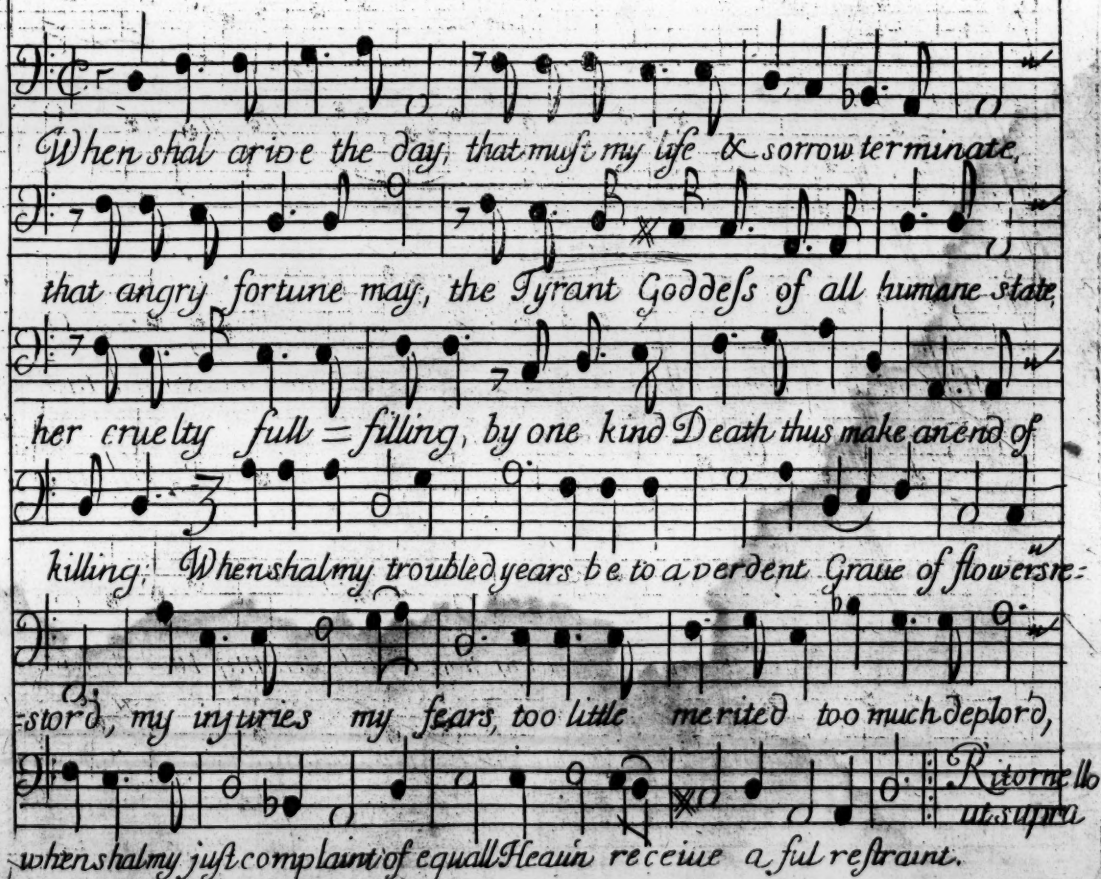 When shal arive the day, that must my life & sorrow terminate,
that angry fortune may, the Tyrant Goddess of all humane state,
her cruelty full = filling, by one kind Death thus make an end of
killing, When shal my troubled years be to a verdent Graue of flowers re=
=stor'd, my injuries my fears, too little merited too much deplord,
Ritornello
ut supra
when shal my just complaint of equall Heaun receiue a ful restraint.